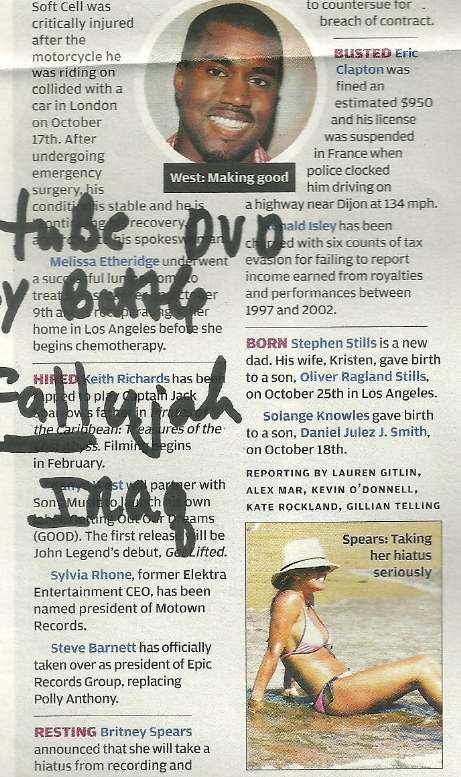 Soft Cell was
critically injured
after the
motorcycle he
was riding on
collided with a
car in London
on October
17th. After
undergoing
emergency
surgery, his
condition is stable and he is
recovery,
his spokeswoman
Melissa Etheridge underwent
9th
home in Los Angeles before she
begins chemotherapy.
HIRED Keith Richards has been
to play Captain Jack
father in Pirates of
the Caribbean: Treasures of the
Filming begins
in February.
West will partner with
Sony Music to launch his own
Getting Out Our Dreams
(GOOD). The first release will be
John Legend's debut, Get Lifted.
Sylvia Rhone, former Elektra
Entertainment CEO, has been
named president of Motown
Records.
Steve Barnett has officially
taken over as president of Epic
Records Group, replacing
Polly Anthony.
RESTING Britney Spears
announced that she will take a
hiatus from recording and
West: Making good
to countersue for
breach of contract.
BUSTED Eric
Clapton was
fined an
estimated $950
and his license
was suspended
in France when
police clocked
him driving on
a highway near Dijon at 134 mph.
Ronald Isley has been
charged with six counts of tax
evasion for failing to report
income earned from royalties
and performances between
1997 and 2002.
BORN Stephen Stills is a new
dad. His wife, Kristen, gave birth
to a son, Oliver Ragland Stills,
on October 25th in Los Angeles.
Solange Knowles gave birth
to a son, Daniel Julez J. Smith,
on October 18th.
REPORTING BY LAUREN GITLIN,
ALEX MAR, KEVIN O'DONNELL,
KATE ROCKLAND, GILLIAN TELLING
Spears: Taking
her hiatus
seriously
tube DVD
Fallujah
Iraq